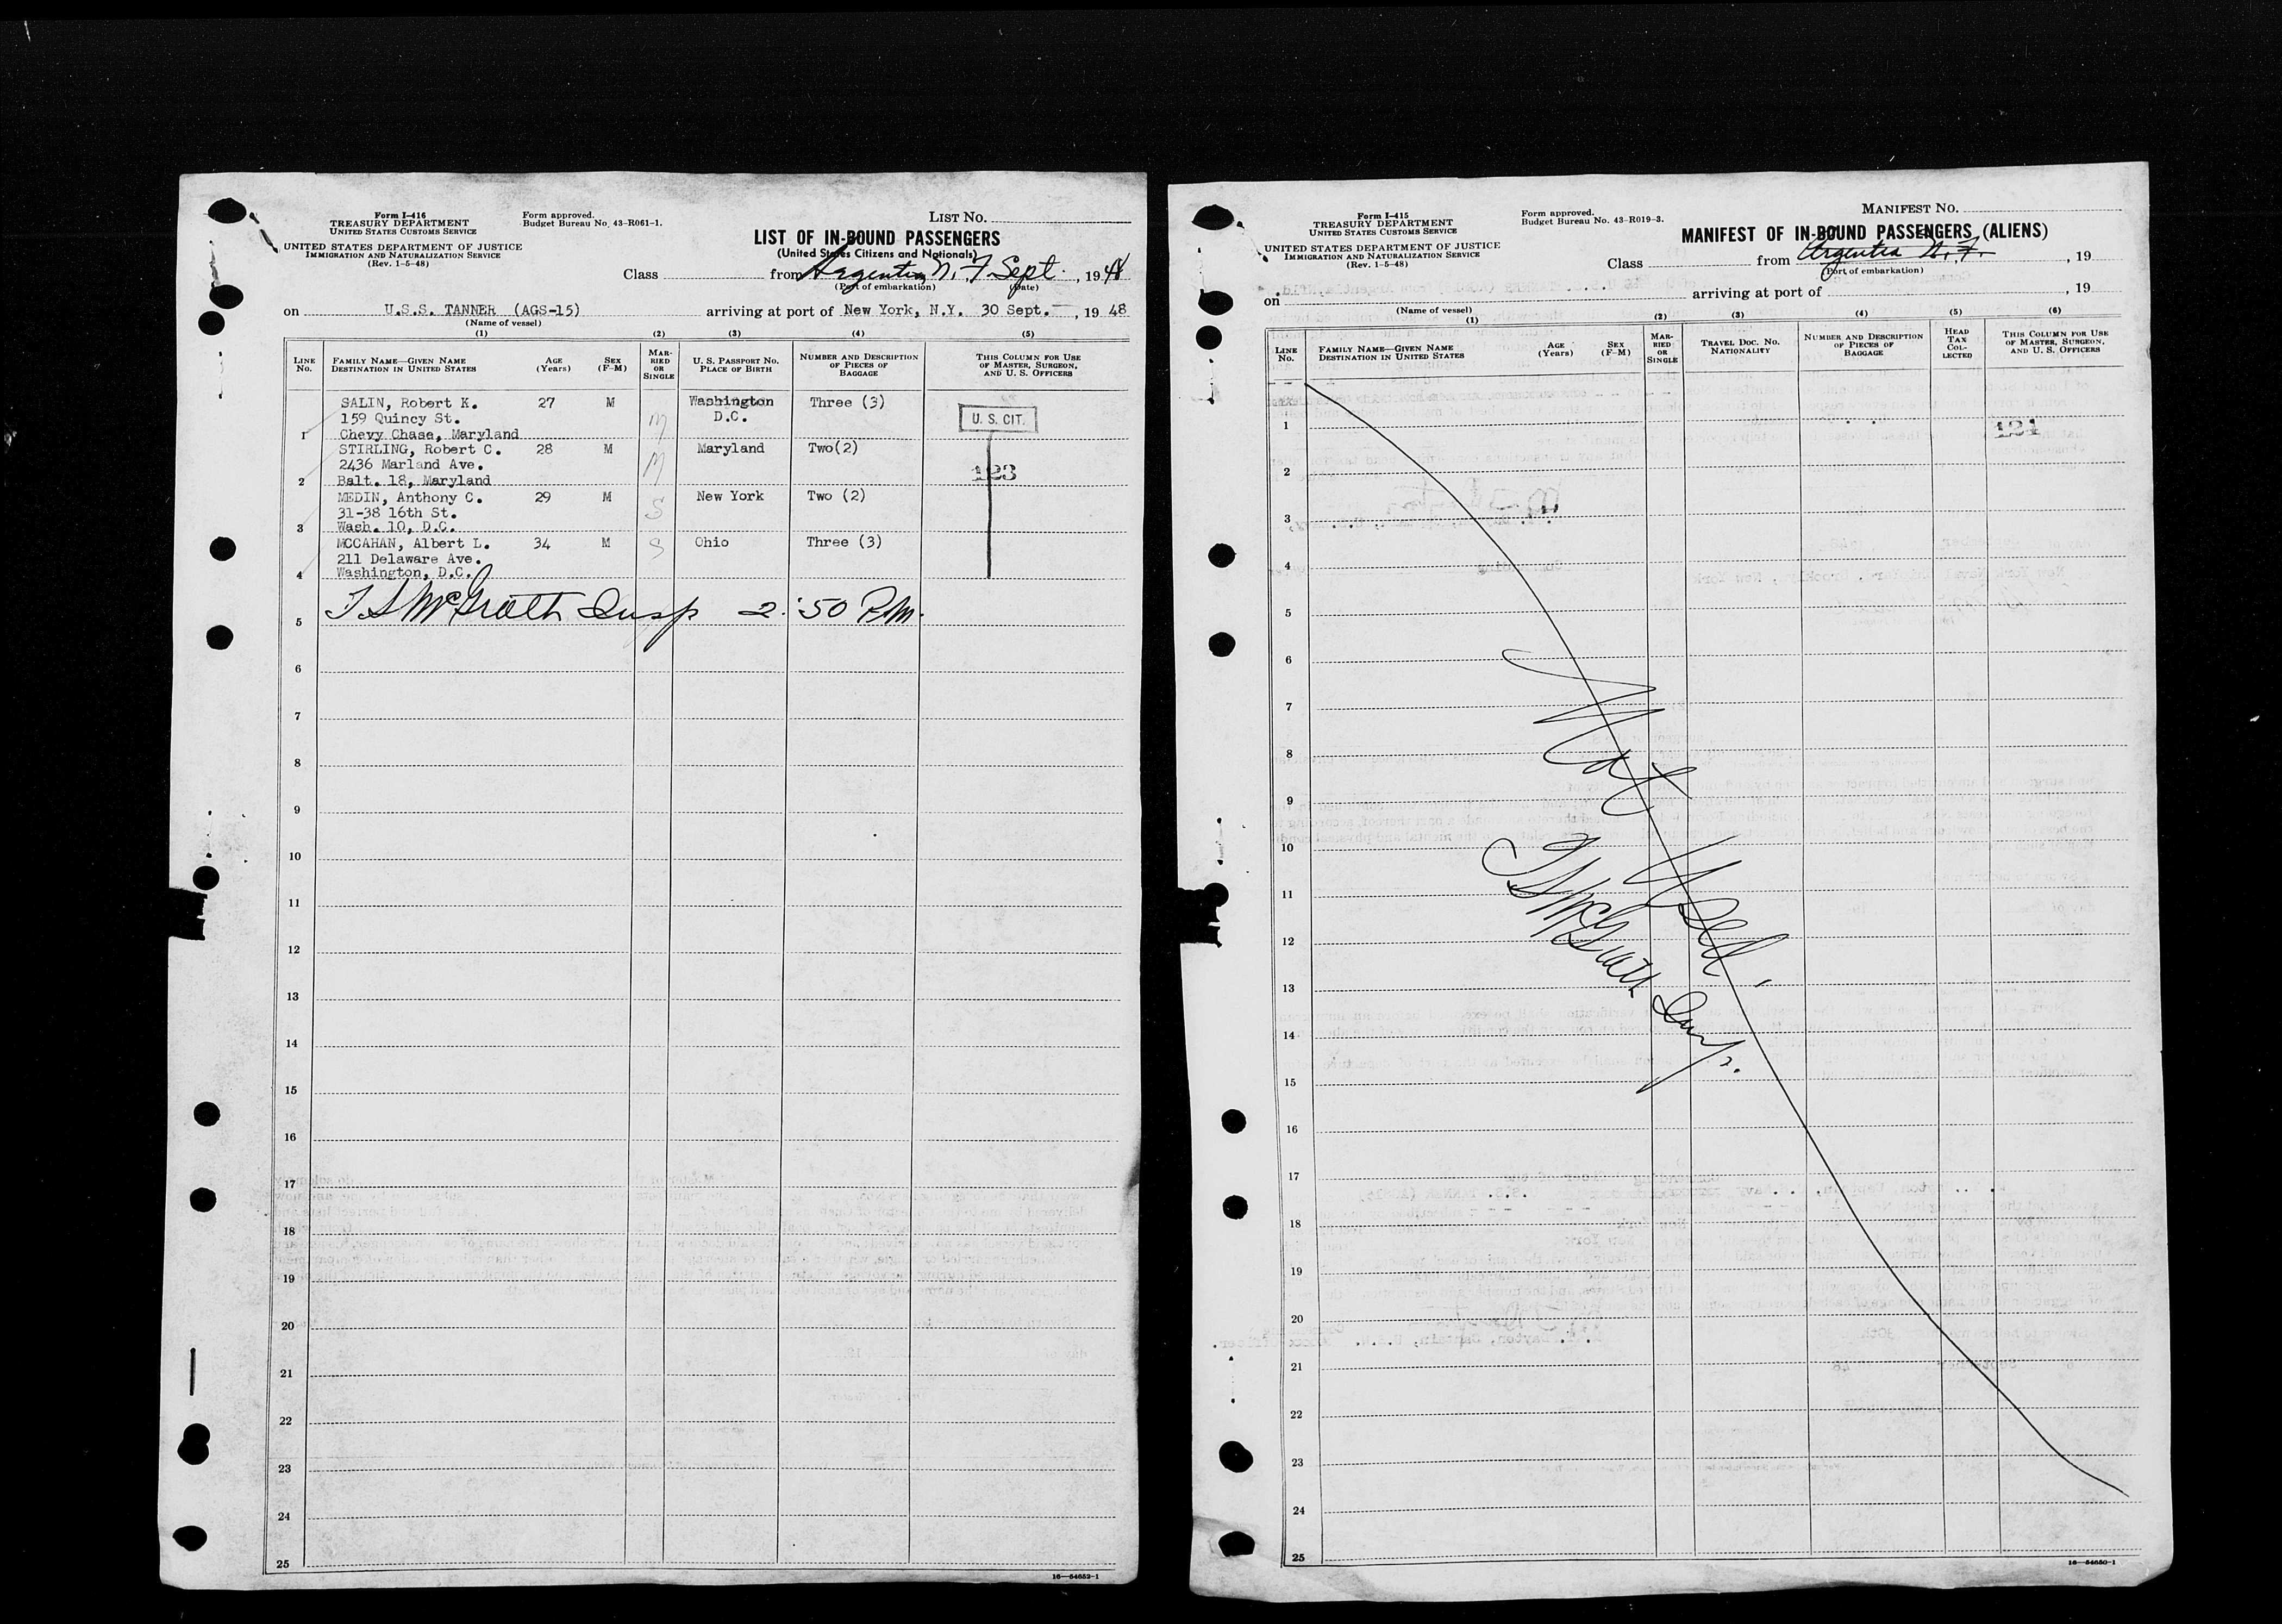 Form I-416
TREASURY DEPARTMENT
UNITED STATES CUSTOMS SERVICE
UNITED STATES DEPARTMENT OF JUSTICE
IMMIGRATION AND NATURALIZATION SERVICE
(Rev. 1-5-48)
Form approved.
Budget Bureau No. 43-R061-1.
LIST NO.
LIST OF IN-BOUND PASSENGERS
(United States Citizens and Nationals)
Class from Argentia N.F. Sept. , 1948
(Port of embarkation) (Date)
on U.S.S. TANNER (AGS-15) arriving at port of New York, N.Y. 30 Sept. , 19 48
(Name of vessel)
(1) (2) (3) (4) (5)
LINE NO. FAMILY NAME—GIVEN NAME DESTINATION IN UNITED STATES AGE (Years) SEX (F-M) MARRIED OR SINGLE U. S. PASSPORT NO. PLACE OF BIRTH NUMBER AND DESCRIPTION OF PIECES OF BAGGAGE THIS COLUMN FOR USE OF MASTER, SURGEON, AND U. S. OFFICERS
SALIN, Robert K. 27 M Washington Three (3)
159 Quincy St. M D.C. U. S. CIT.
1 Chevy Chase, Maryland
STIRLING, Robert C. 28 M Maryland Two(2)
2436 Marland Ave. M 123
2 Balt. 18, Maryland
MEDIN, Anthony C. 29 M New York Two (2)
31-38 16th St. S
3 Wash. 10, D.C.
MCCAHAN, Albert L. 34 M S Ohio Three (3)
211 Delaware Ave.
4 Washington, D.C.
5 T S McGrath Insp 2:50 P.M.
6
7
8
9
10
11
12
13
14
15
16
17
18
19
20
21
22
23
24
25
16—54652-1
Form I-415
TREASURY DEPARTMENT
UNITED STATES CUSTOMS SERVICE
UNITED STATES DEPARTMENT OF JUSTICE
IMMIGRATION AND NATURALIZATION SERVICE
(Rev. 1-5-48)
Form approved.
Budget Bureau No. 43-R019-3.
MANIFEST NO.
MANIFEST OF IN-BOUND PASSENGERS (ALIENS)
Class from Argentia N.F. , 19
(Port of embarkation)
on arriving at port of , 19
(Name of vessel)
(1) (2) (3) (4) (5) (6)
LINE NO. FAMILY NAME—GIVEN NAME DESTINATION IN UNITED STATES AGE (Years) SEX (F-M) MARRIED OR SINGLE TRAVEL DOC. NO. NATIONALITY NUMBER AND DESCRIPTION OF PIECES OF BAGGAGE HEAD TAX COLLECTED THIS COLUMN FOR USE OF MASTER, SURGEON, AND U. S. OFFICERS
1 124
2
3
4
5
6
7
8
9
10
11
12
13
14
15
16
17
18
19
20
21
22
23
24
25
Not Used
T S McGrath Insp.
16—54650-1